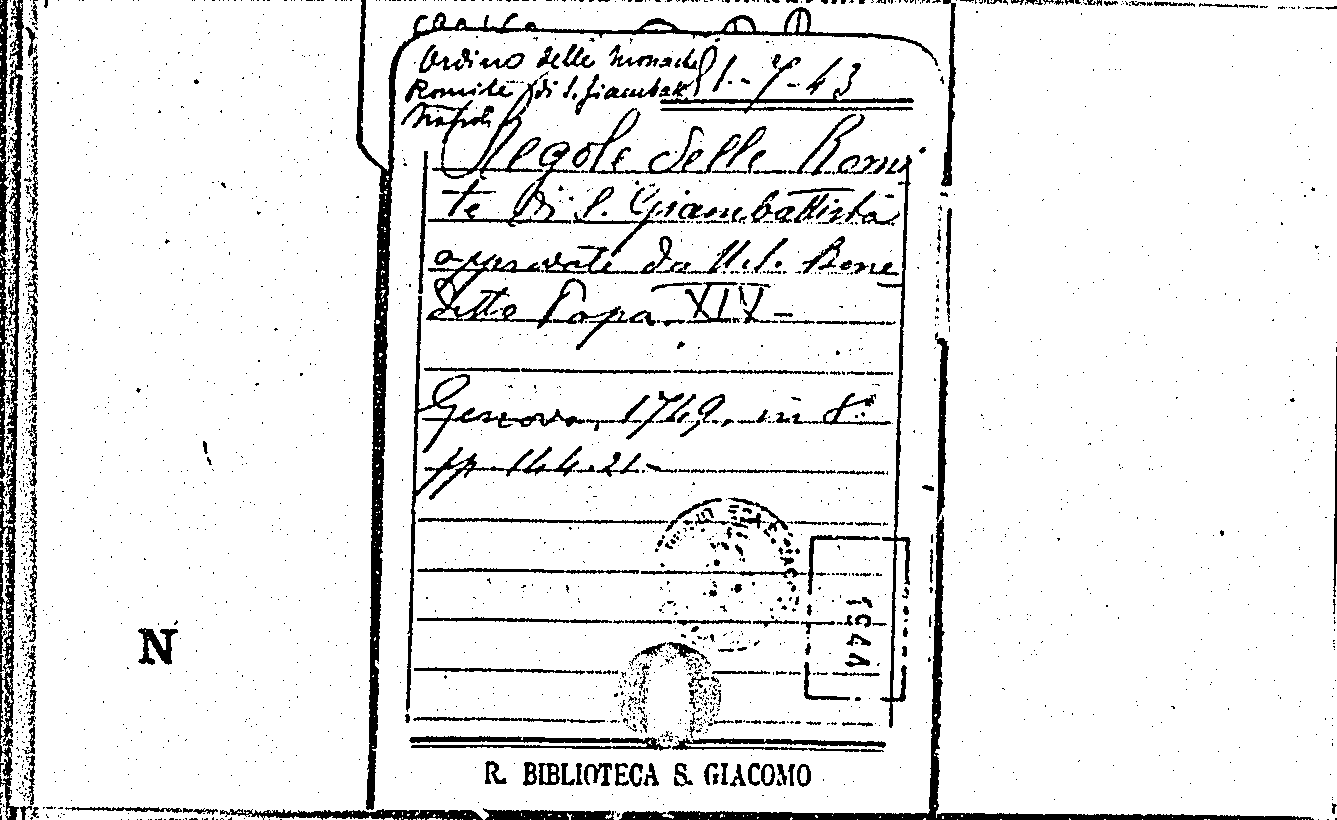 Ordine delle Monache
Romite di S. Giambatt.
Napoli
1-7-43
Regole delle Romi
te di S. Giambattista
approvate da N.S. Bene
detto Papa XIV-
Genova, 1749, in 8°
pp. 144.21-
1944
N
R. BIBLIOTECA S. GIACOMO